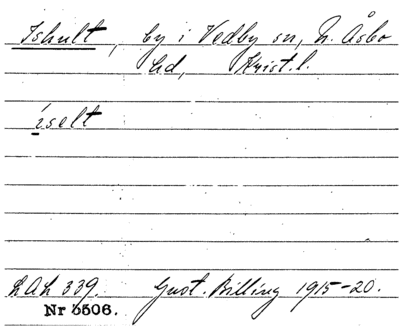 Ishult, by i Vedby sn, N. Åsbo
hd, Krist. l.
íselt
LAL 339. Gust. Billing 1915-20.
Nr 5506.